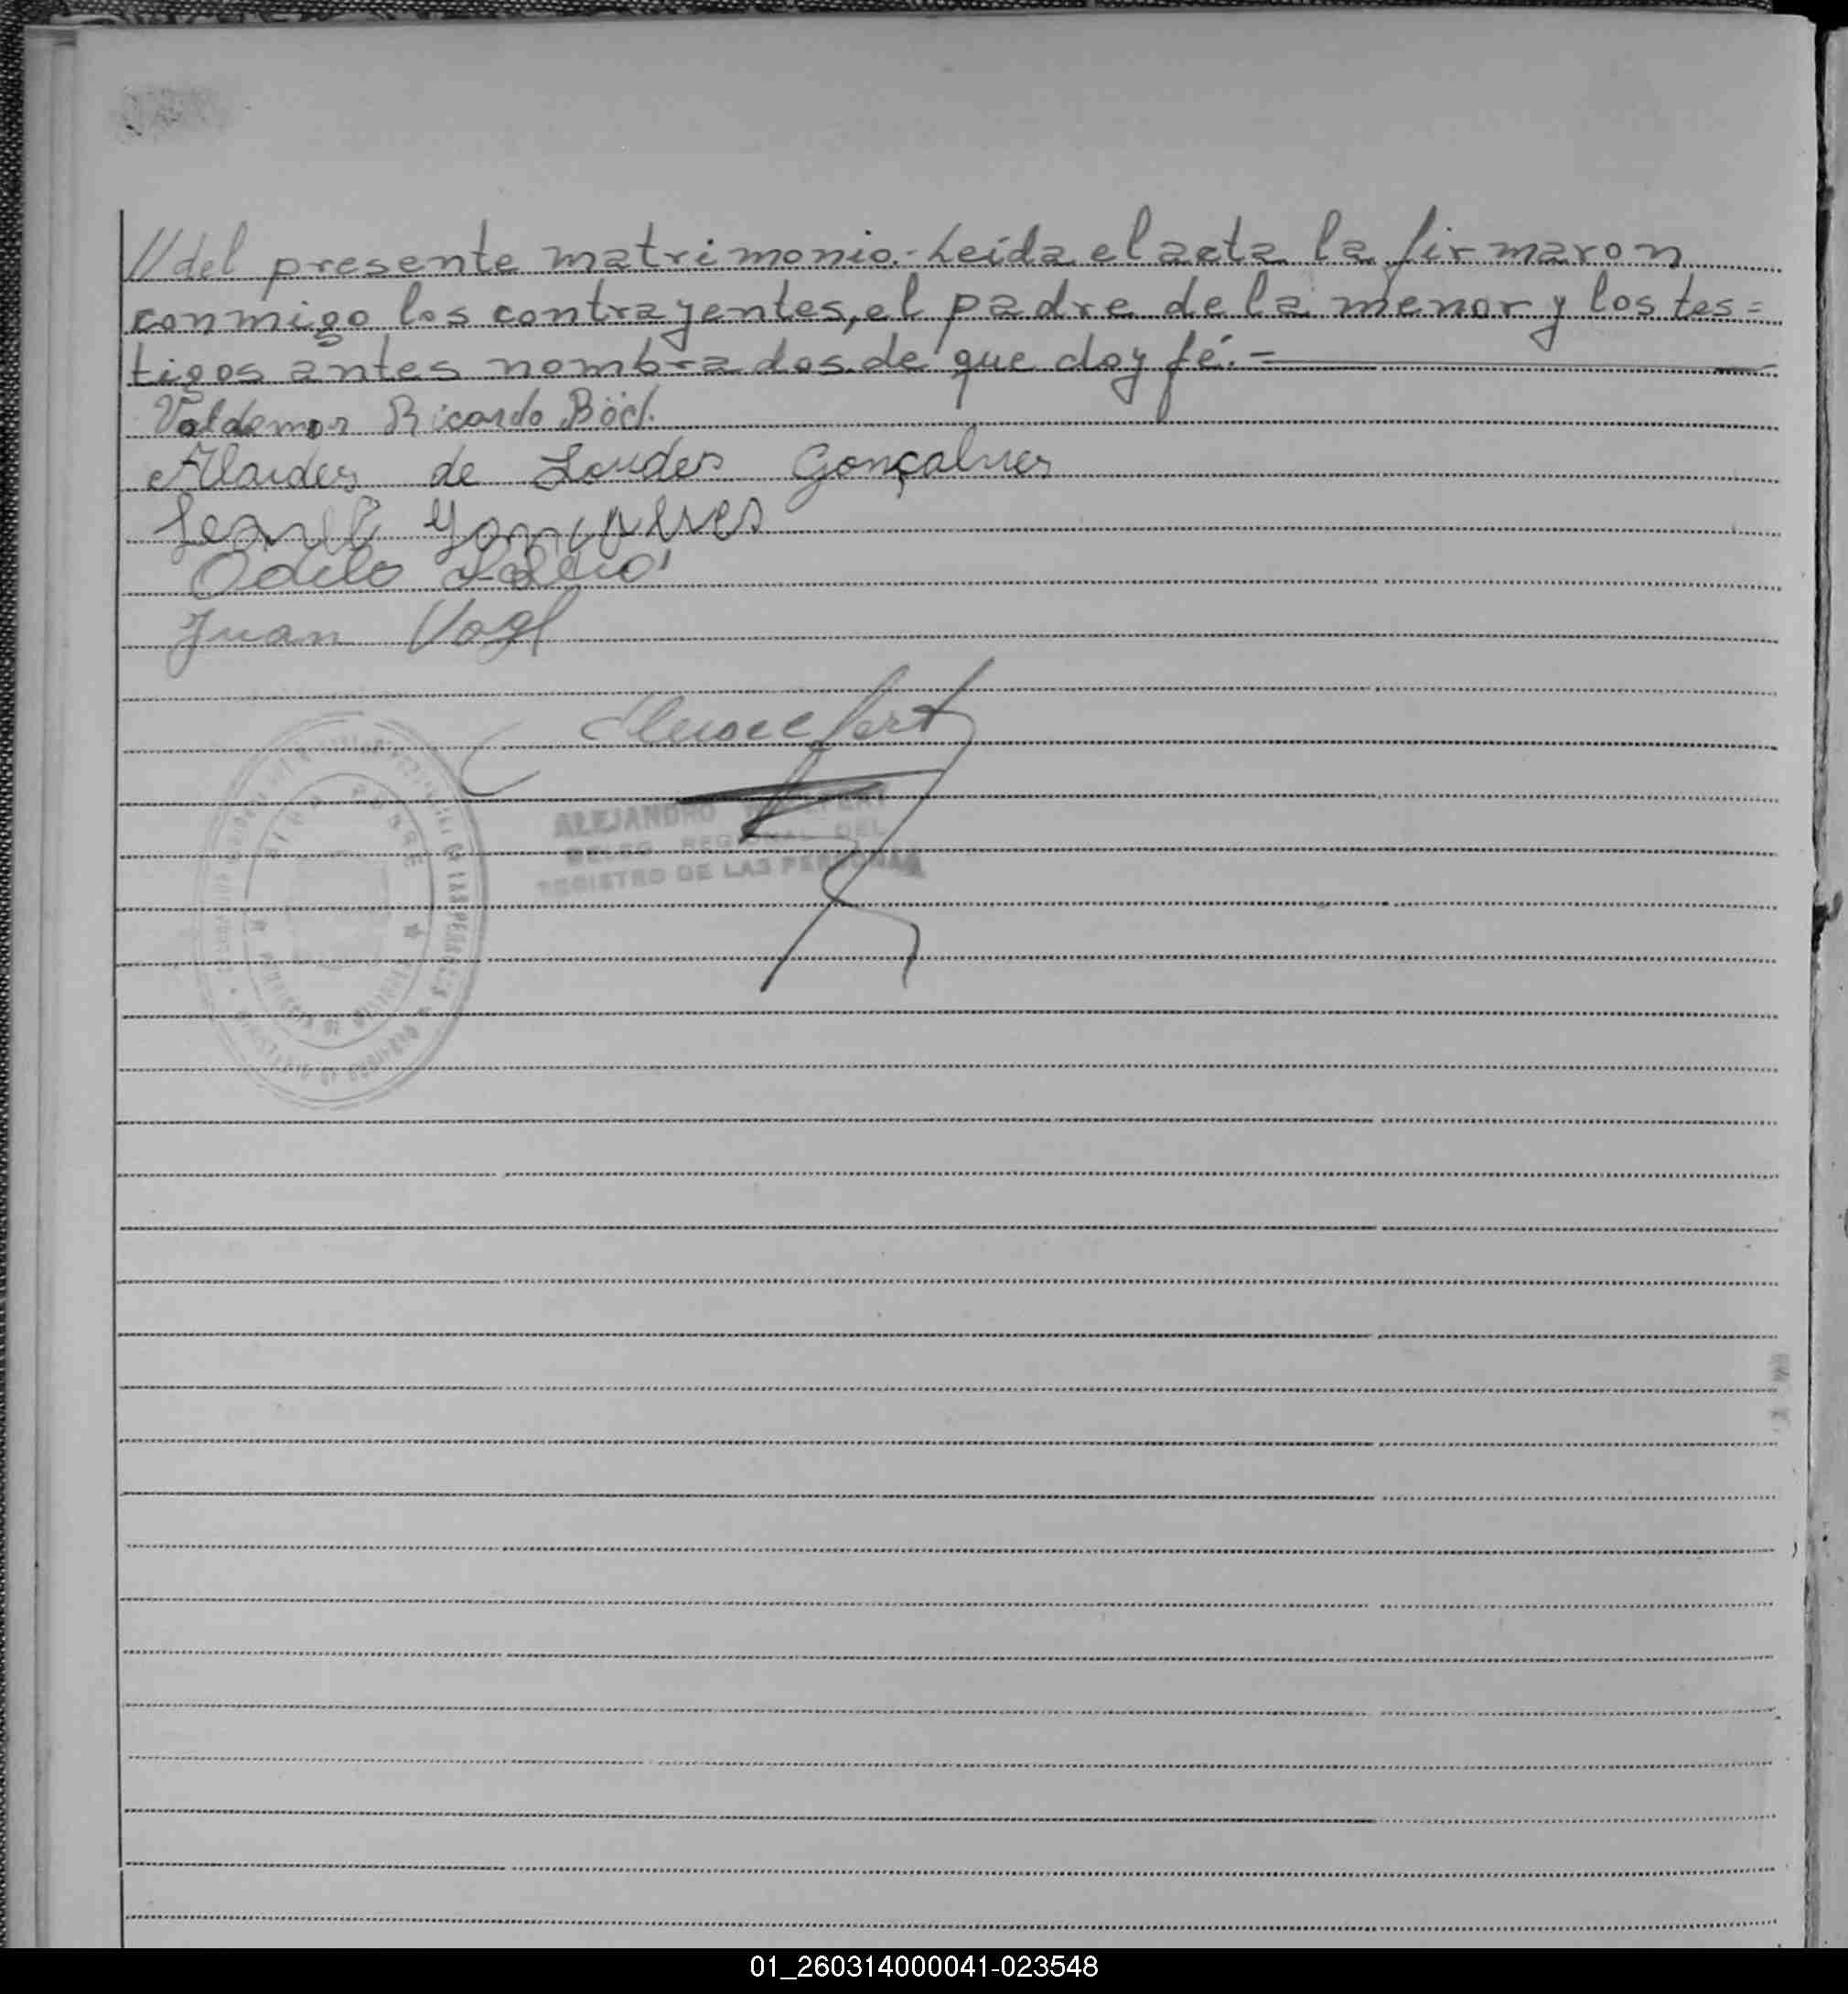 //del presente matrimonio.- Leída el acta la firmaron
conmigo los contrayentes, el padre de la menor y los tes=
tigos antes nombrados. de que doy fé.=
Valdemar Ricardo Böck
Alaides de Loudes Gonçalves
Odilo
Juan Vogl
ALEJANDRO
DELEG. REGIONAL DEL
REGISTRO DE LAS PERSONAS
01_260314000041-023548